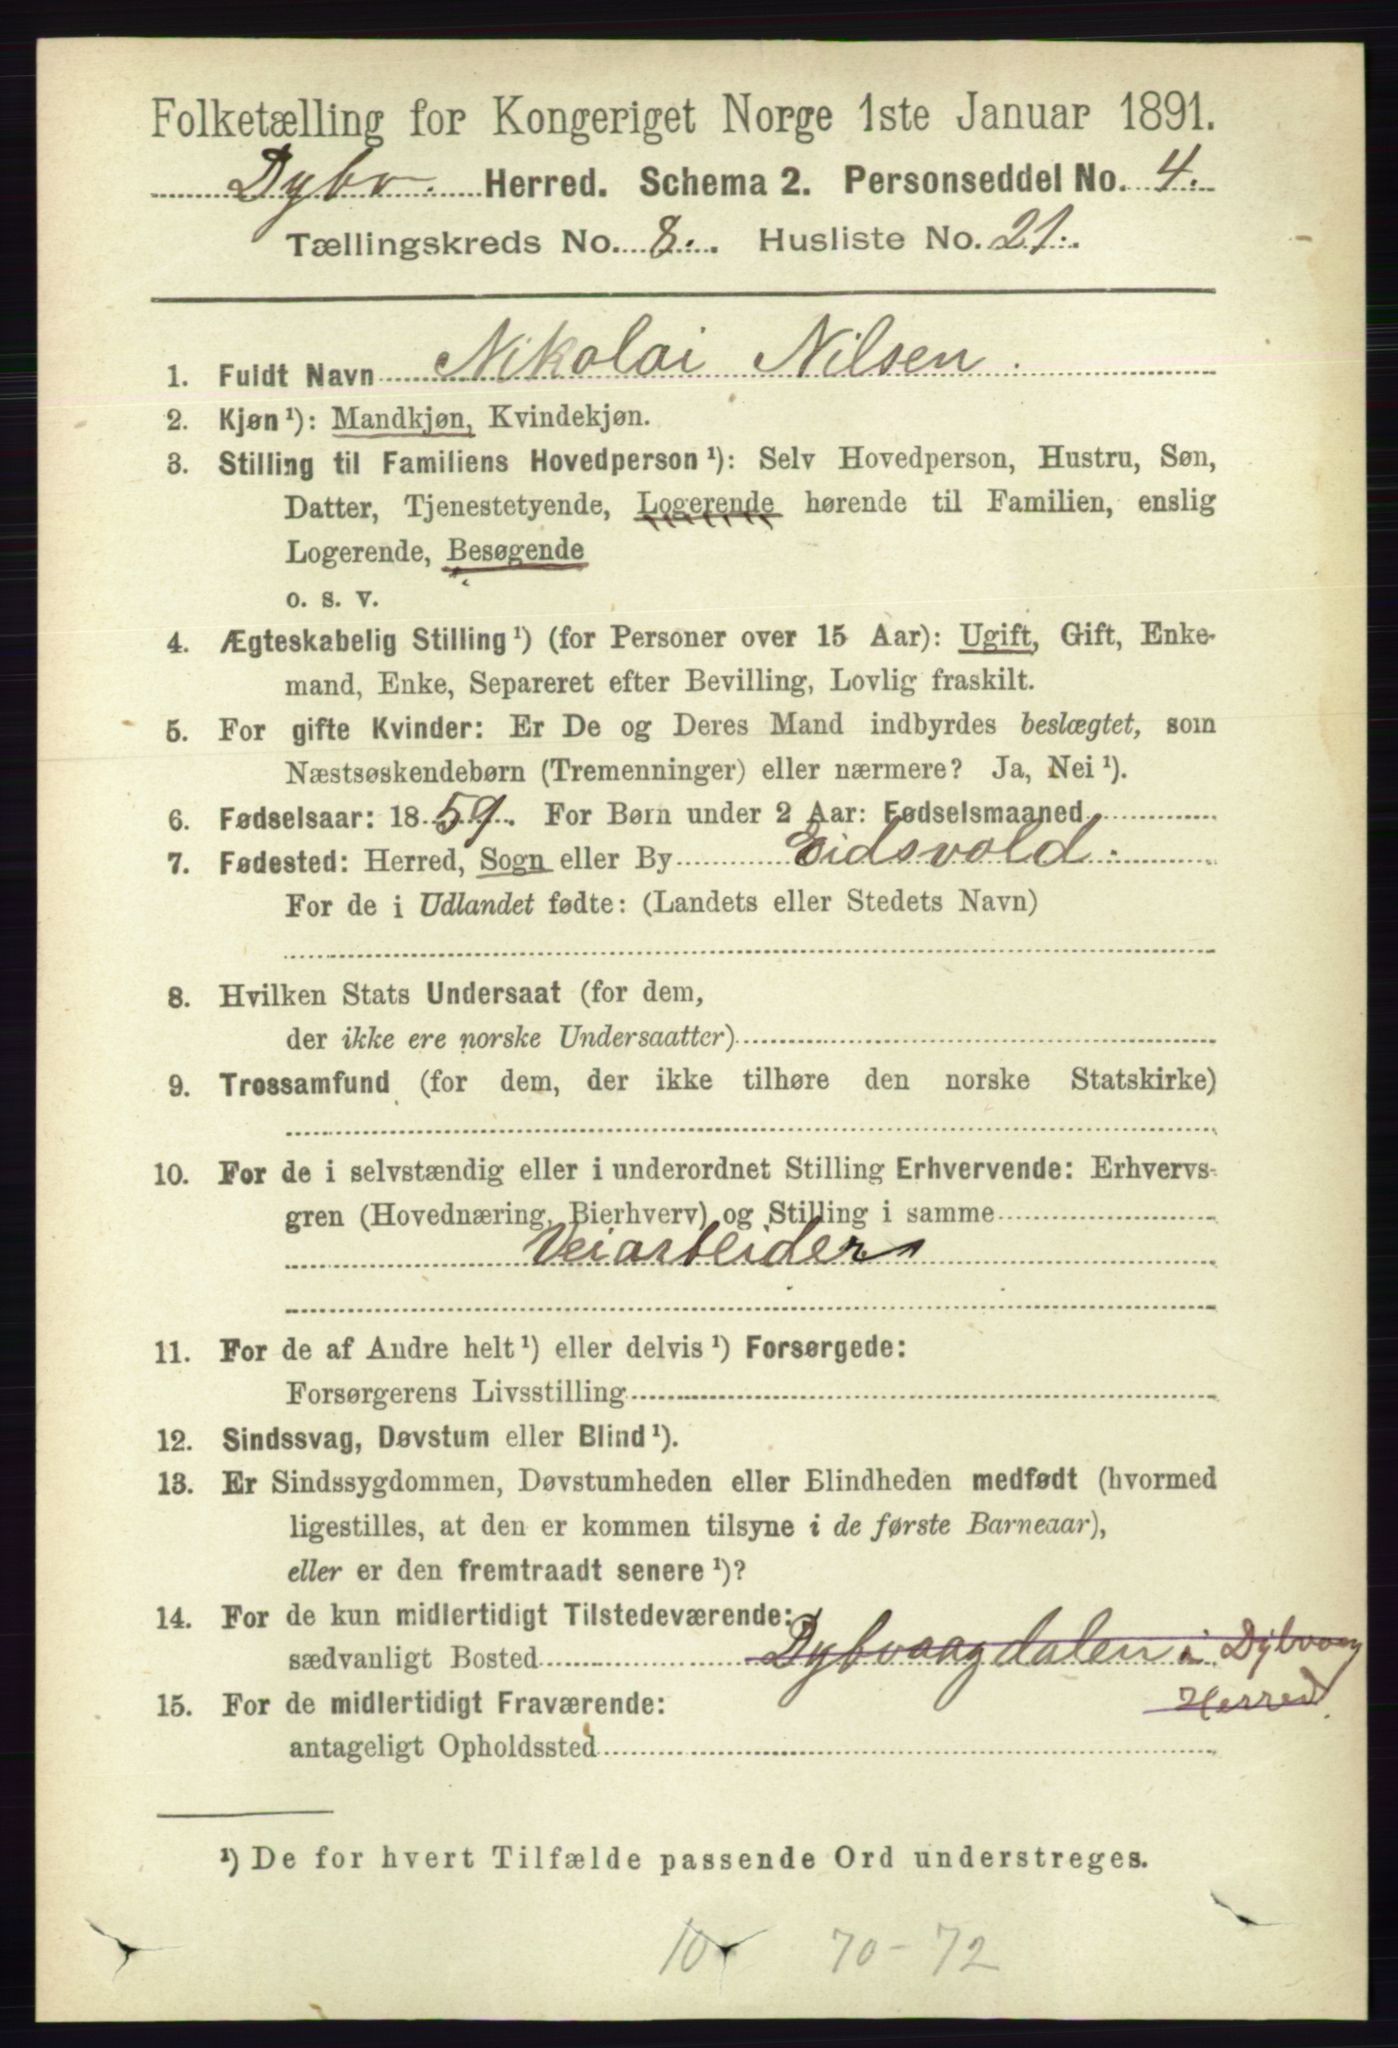 Folketælling for Kongeriget Norge 1ste Januar 1891.
Dybv. Herred. Schema 2. Personseddel No. 4.
Tællingskreds No. 8. Husliste No. 21.
1. Fuldt Navn Nikolai Nilsen.
2. Kjøn ¹): Mandkjøn, Kvindekjøn.
3. Stilling til Familiens Hovedperson ¹): Selv Hovedperson, Hustru, Søn,
Datter, Tjenestetyende, Logerende hørende til Familien, enslig
Logerende, Besøgende
o. s. v.
4. Ægteskabelig Stilling ¹) (for Personer over 15 Aar): Ugift, Gift, Enke-
mand, Enke, Separeret efter Bevilling, Lovlig fraskilt.
5. For gifte Kvinder: Er De og Deres Mand indbyrdes beslægtet, som
Næstsøskendebørn (Tremenninger) eller nærmere? Ja, Nei ¹).
6. Fødselsaar: 1859. For Børn under 2 Aar: Fødselsmaaned
7. Fødested: Herred, Sogn eller By Eidsvold.
For de i Udlandet fødte: (Landets eller Stedets Navn)
8. Hvilken Stats Undersaat (for dem,
der ikke ere norske Undersaatter)
9. Trossamfund (for dem, der ikke tilhøre den norske Statskirke)
10. For de i selvstændig eller i underordnet Stilling Erhvervende: Erhvervs-
gren (Hovednæring, Bierhverv) og Stilling i samme
Veiarbeider
11. For de af Andre helt ¹) eller delvis ¹) Forsørgede:
Forsørgerens Livsstilling
12. Sindssvag, Døvstum eller Blind ¹).
13. Er Sindssygdommen, Døvstumheden eller Blindheden medfødt (hvormed
ligestilles, at den er kommen tilsyne i de første Barneaar),
eller er den fremtraadt senere ¹)?
14. For de kun midlertidigt Tilstedeværende:
sædvanligt Bosted Dybvaagdalen i Dybvaag
Herred
15. For de midlertidigt Fraværende:
antageligt Opholdssted
¹) De for hvert Tilfælde passende Ord understreges.
10 70-72